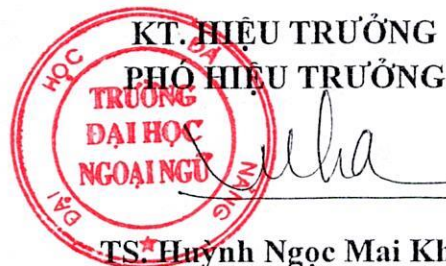 KT. HIỆU TRƯỞNG
PHÓ HIỆU TRƯỞNG
ĐẠI HỌC ĐÀ NẴNG
TRƯỜNG
ĐẠI HỌC
NGOẠI NGỮ
TS. Huỳnh Ngọc Mai